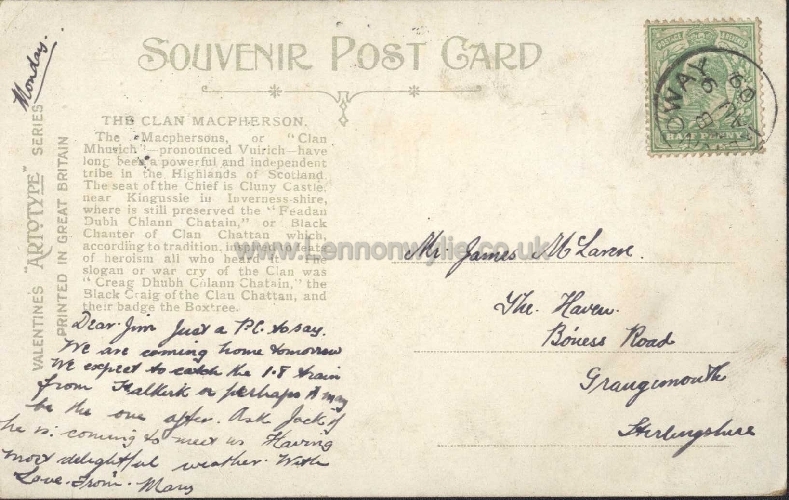 Monday.
SOUVENIR POST CARD
VALENTINE'S "ARTOTYPE" SERIES
PRINTED IN GREAT BRITAIN
THE CLAN MACPHERSON.
The Macphersons, or "Clan
Mhuirich"—pronounced Vuirich—have
long been a powerful and independent
tribe in the Highlands of Scotland.
The seat of the Chief is Cluny Castle,
near Kingussie in Inverness-shire,
where is still preserved the "Feadan
Dubh Chlann Chatain," or Black
Chanter of Clan Chattan which,
according to tradition, incited to feats
of heroism all who hear it. The
slogan or war cry of the Clan was
"Creag Dhubh Chlann Chatain," the
Black Craig of the Clan Chattan, and
their badge the Boxtree.
Dear Jim Just a P.C. to say.
We are coming home tomorrow
We expect to catch the 1-8 train
from Falkirk or perhaps it may
be the one after. Ask Jack if
he is coming to meet us Having
most delightful weather. With
Love. From. Mary
HALFPENNY
Mr. James McLaren.
The Haven.
Boness Road
Grangemouth
Stirlingshire
www.kennonwylie.co.uk